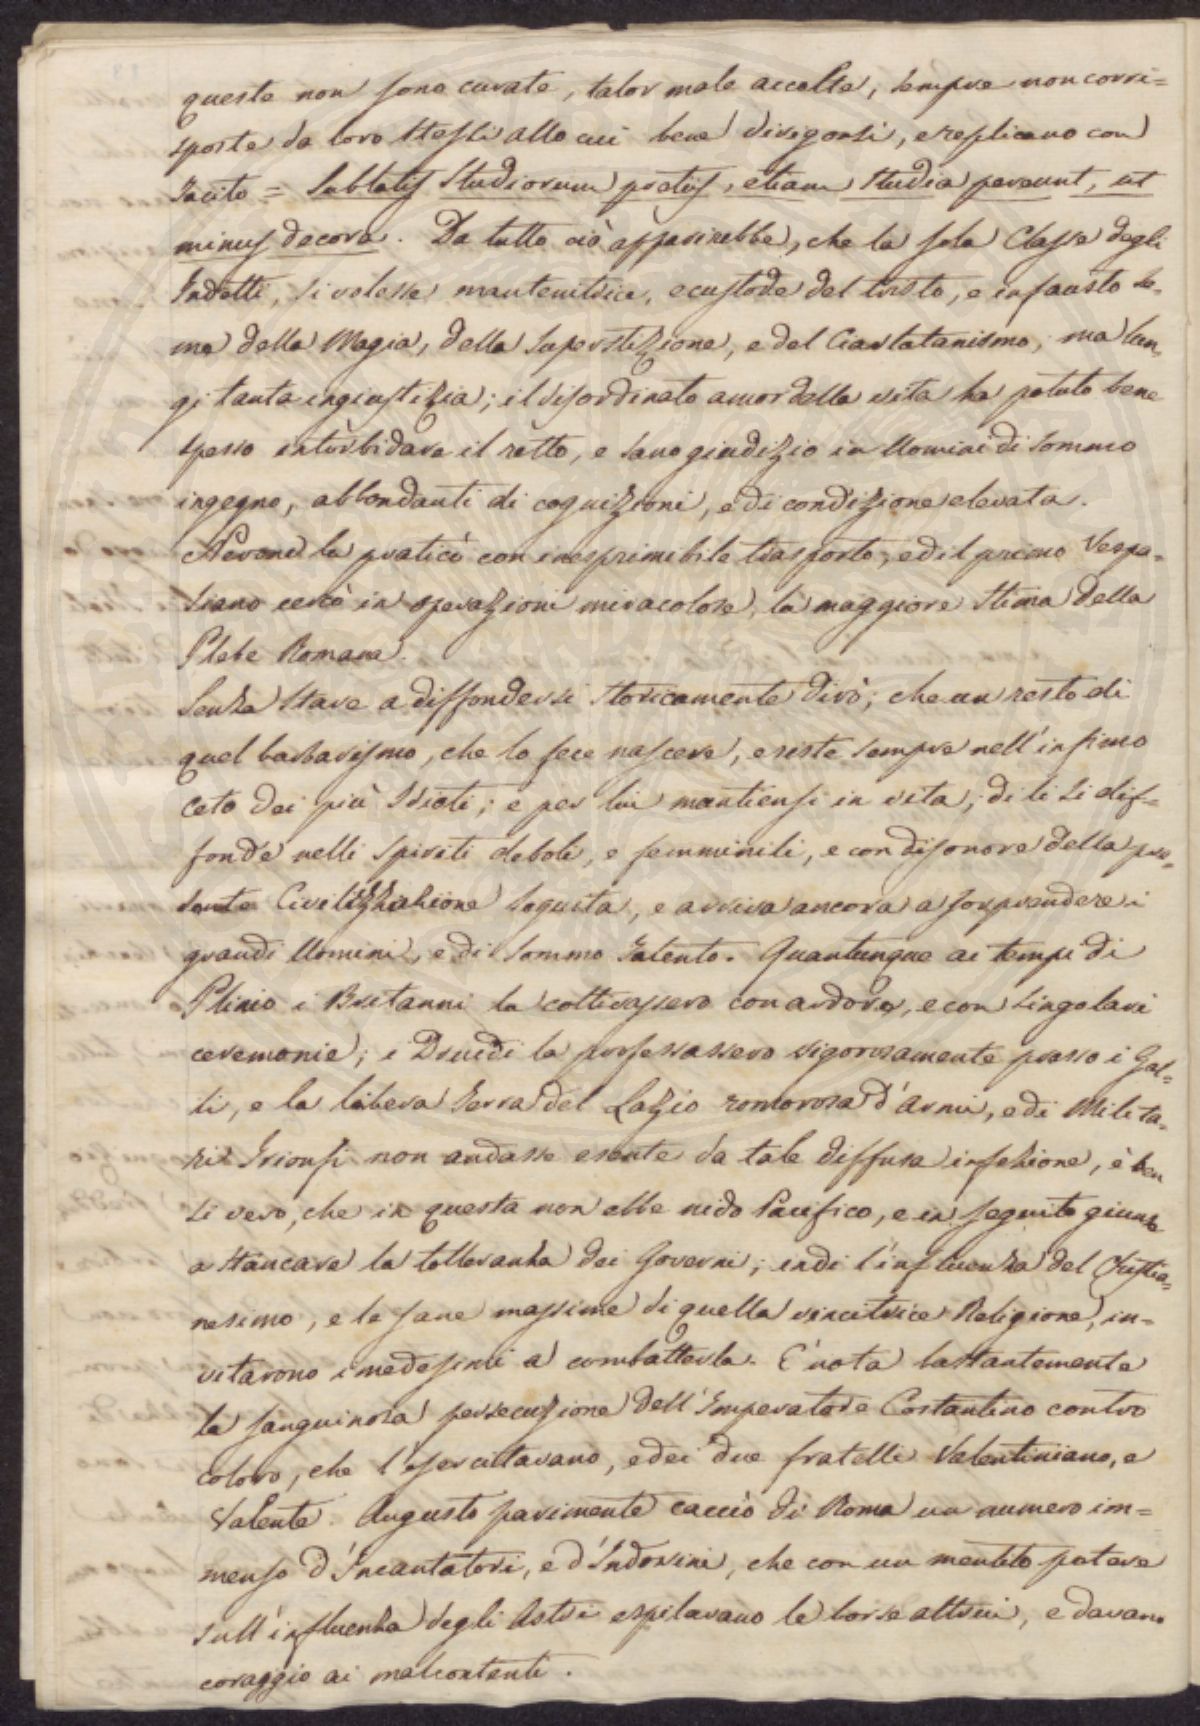 queste non sono curate, talor male accolte, sempre non corri=
sposte da loro stessi allo cui bene dirigonsi, e replicano con
Tacito = Sublatis Studiorum pretiis, etiam Studia pereunt, ut
minus decora. Da tutto ciò apparirebbe, che la sola Classe degli
Indotti, si volesse mantenitrice, e custode del tristo, e infausto se=
me della Magia, della Superstizione, e del Ciarlatanismo; ma lun=
gi tanta ingiustizia; il disordinato amor della vita ha potuto bene
spesso intorbidare il retto, e sano giudizio in Uomini di sommo
ingegno, abbondanti di cognizioni, e di condizione elevata.
Nerone la praticò con inesprimibile trasporto, ed il primo Vespa=
siano cercò in operazioni miracolose, la maggiore stima della
Plebe Romana.
Senza stare a diffondersi storicamente dirò; che un resto di
quel barbarismo, che lo fece nascere, esiste sempre nell'infimo
ceto dei più Idioti; e per lui mantiensi in vita; di lì si dif=
fonde nelli spiriti deboli, e femminili, e con disonore della pre=
sente Civilizzazione seguita, e arriva ancora a sorprendere i
grandi Uomini, e di sommo talento. Quantunque ai tempi di
Plinio i Britanni la coltivassero con ardore, e con singolari
ceremonie; i Druidi la professassero vigorosamente presso i Gal=
li, e la libera Terra del Lazio romorosa d'Armi, e di Milita=
ri Trionfi non andasse esente da tale diffusa infezione, è ben
sì vero, che in questa non ebbe nido Pacifico, e in seguito giunse
a stancare la tolleranza dei Governi; indi l'influenza del Cristia=
nesimo, e le sane massime di quella vincitrice Religione, in=
vitarono i medesimi a combatterla. È nota bastantemente
la sanguinosa persecuzione dell'Imperatore Costantino contro
coloro, che l'esercitavano, e dei due fratelli Valentiniano, e
Valente. Augusto parimente cacciò di Roma un numero im=
menso d'Incantatori, e d'Indovini, che con un mentito potere
sull'influenza degli Astri espilavano le borse altrui, e davano
coraggio ai malcontenti.